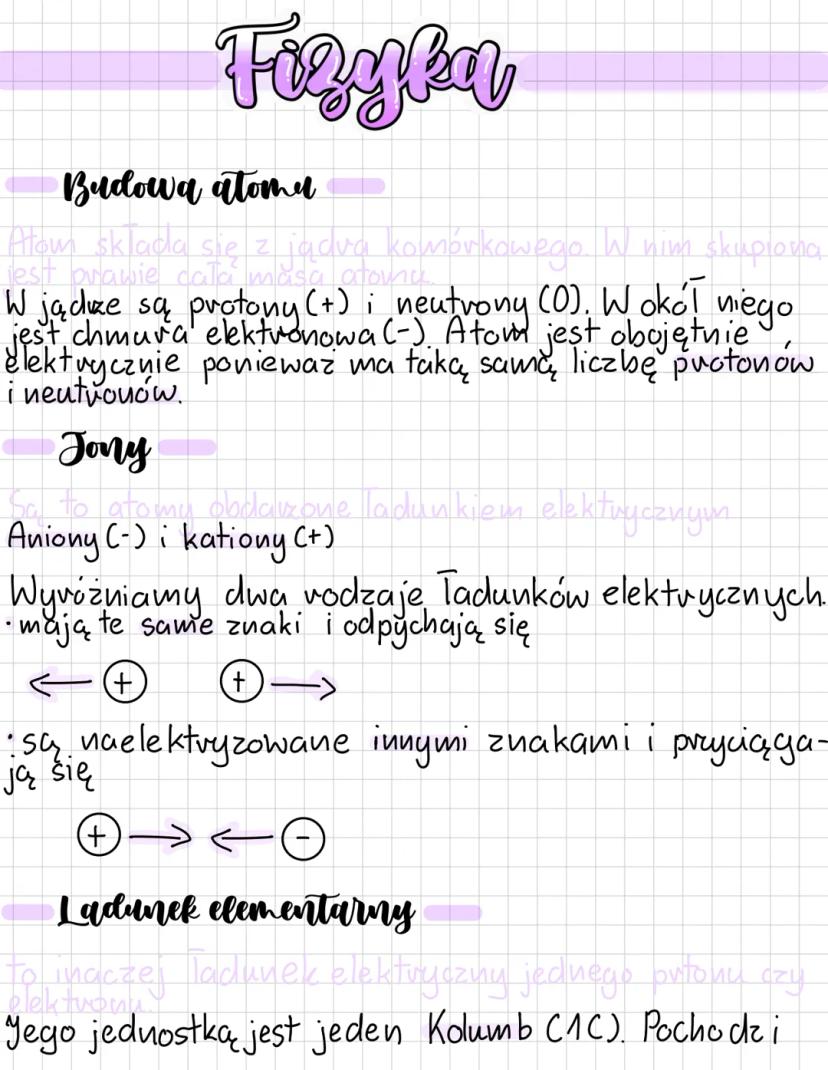 Fizyka
Budowa atomu
Atom składa się z jądra komórkowego. W nim skupiona
jest prawie cała masa atomu.
W jądrze są protony (+) i neutrony (0). W okół niego
jest chmura elektronowa (-). Atom jest obojętnie
elektrycznie ponieważ ma taką samą liczbę protonów
i neutronów.
Jony
Są to atomy obdarzone ładunkiem elektrycznym
Aniony (-) i kationy (+)
Wyróżniamy dwa rodzaje ładunków elektrycznych.
· mają te same znaki i odpychają się
+ +
· są naelektryzowane innymi znakami i przyciąga-
ją się
+ -
Ładunek elementarny
to inaczej ładunek elektryczny jednego prtonu czy
elektronu.
Jego jednostką jest jeden Kolumb (1C). Pochodzi